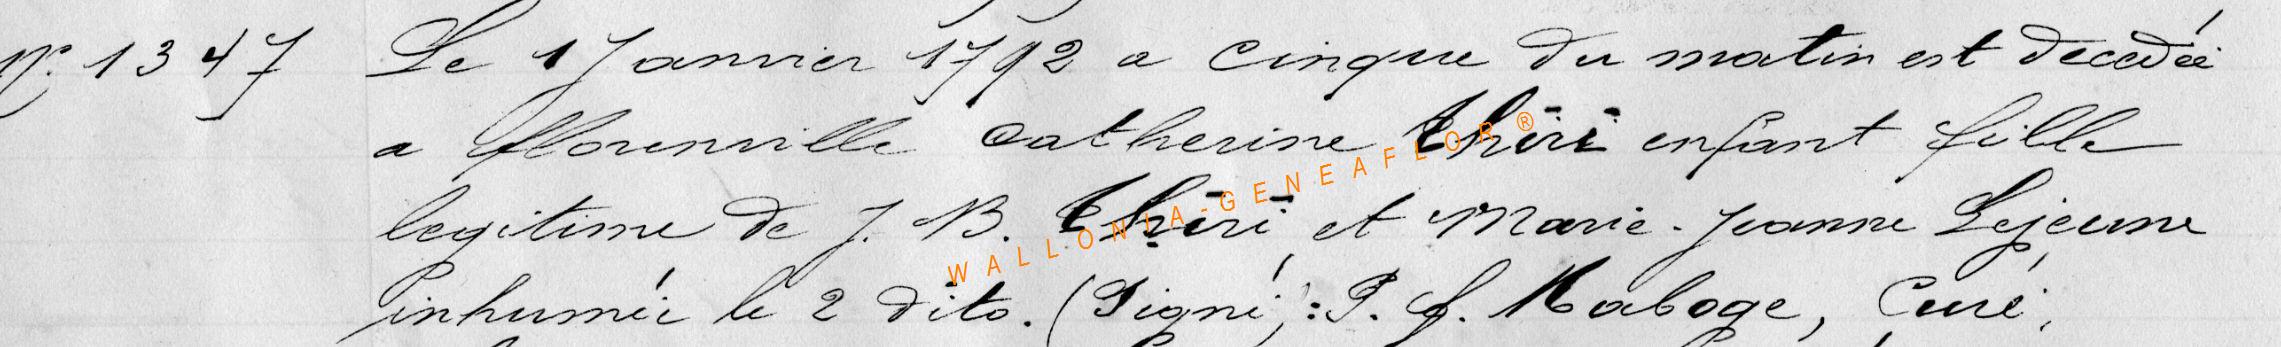 N° 1347 Le 1 Janvier 1792 a cinque du matin est decedée
a florenville Catherine Thiri enfant fille
legitime de J. B. Thiri et Marie-Jeanne Lejeune
inhumée le 2 dito. (Signé): P. f. Maboge, Curé,
WALLONIA-GENEAFLOR®